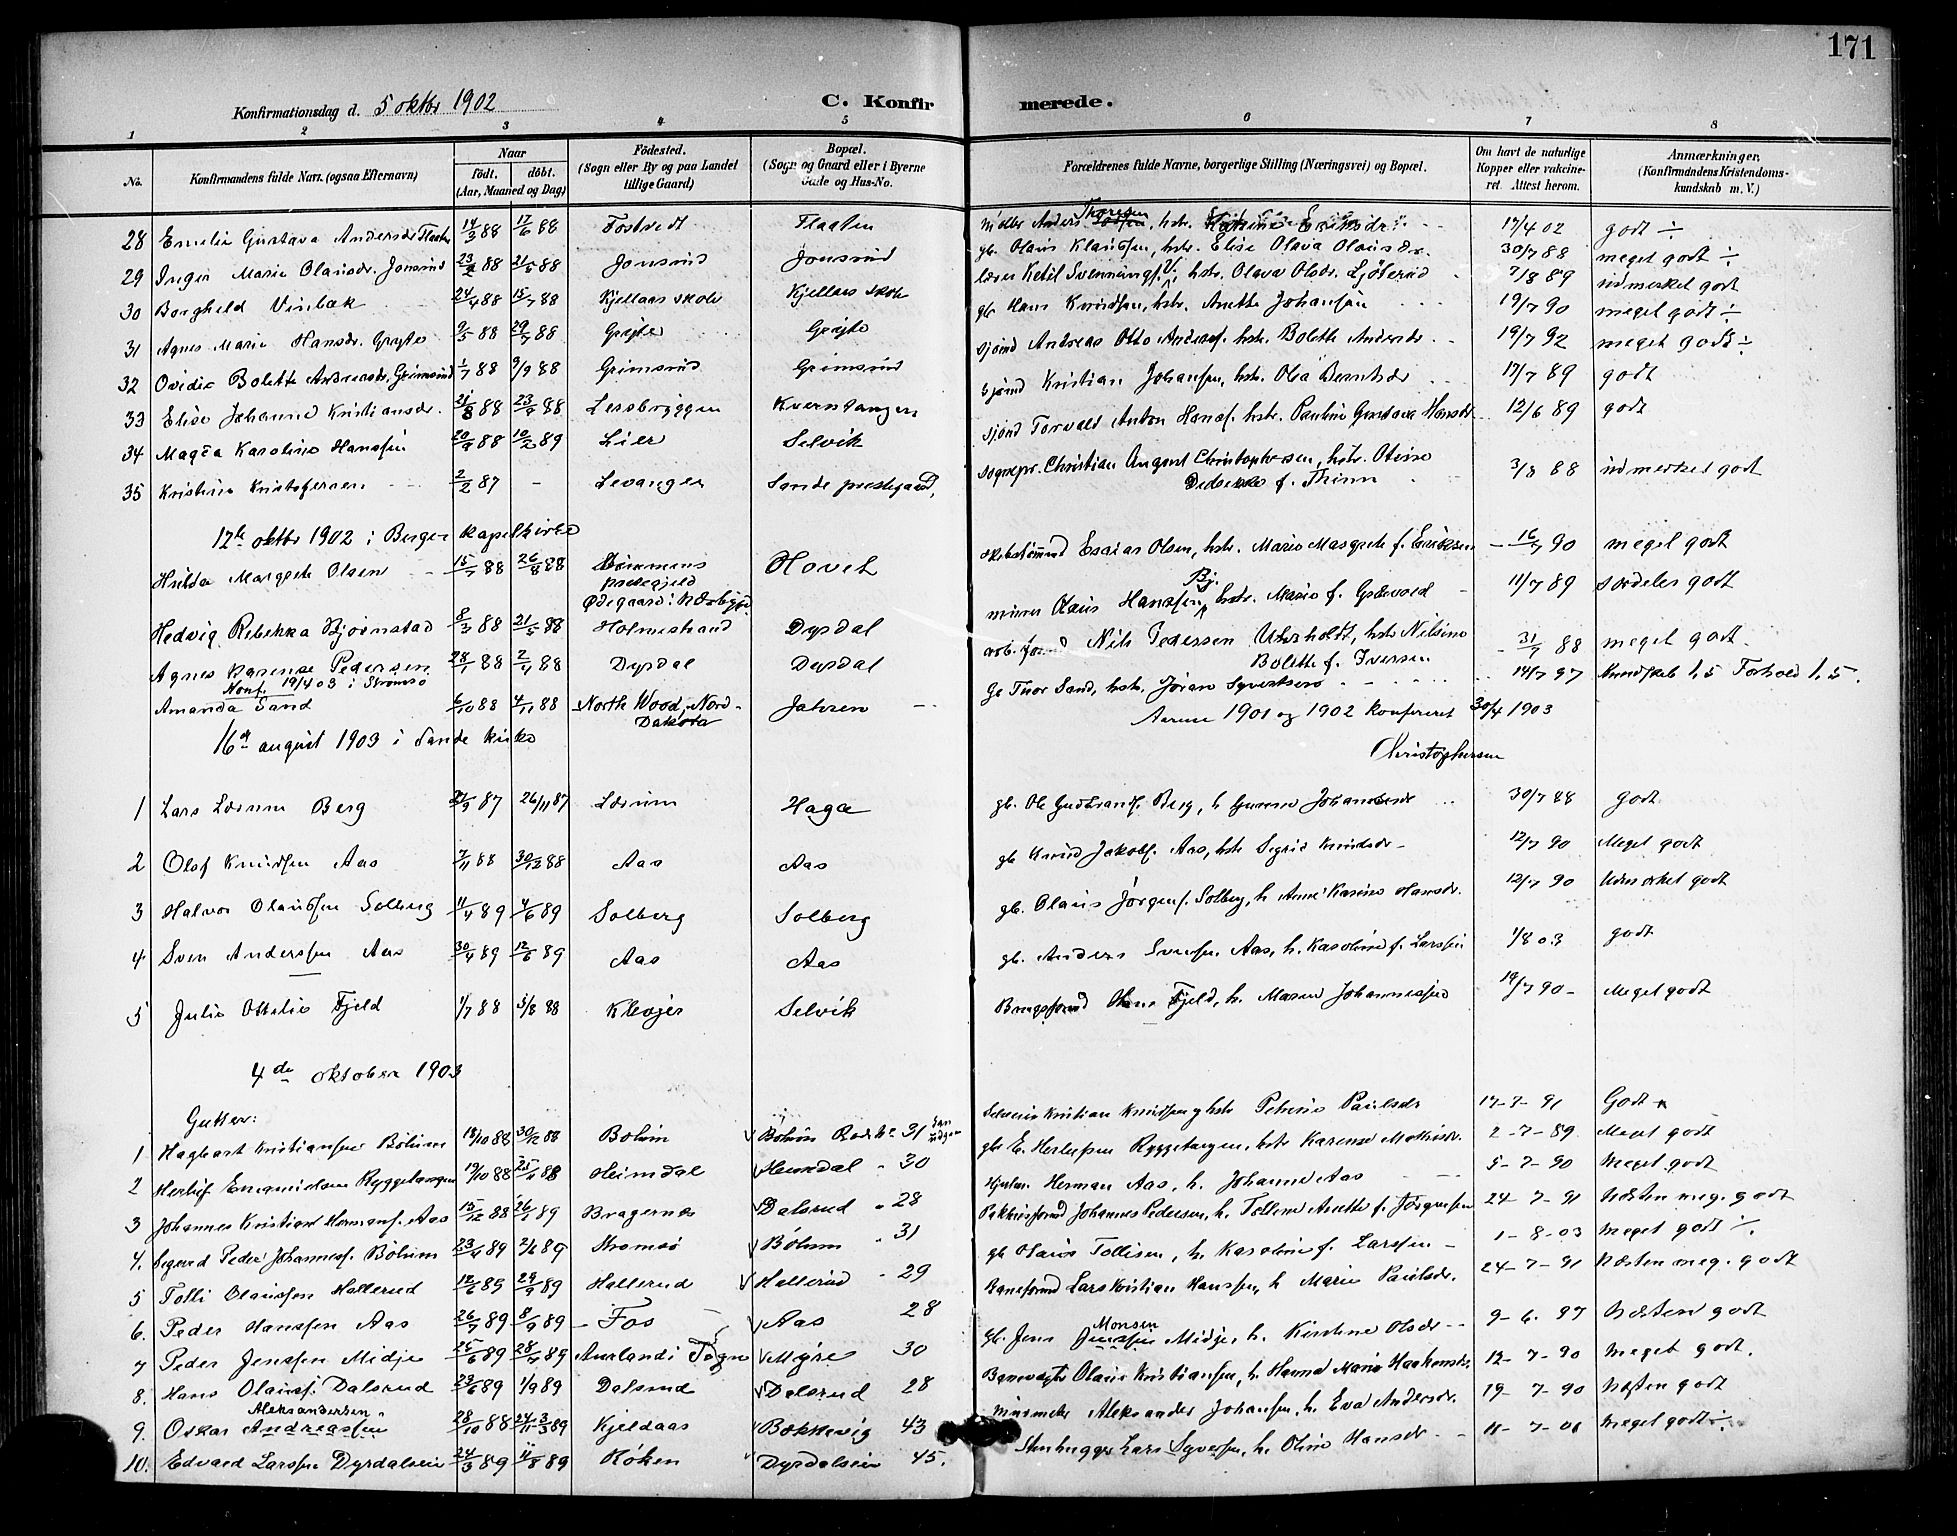 171
Konfirmationsdag d. 5 oktbr 1902 C. Konfirmerede.
1 2 3 4 5 6 7 8
No. Konfirmandens fulde Navn (ogsaa Efternavn) Naar født. døbt. (Aar, Maaned og Dag) Födested. (Sogn eller By og paa Landet tillige Gaard) Bopæl. (Sogn og Gaard eller i Byerne Gade og Hus-No. Forældrenes fulde Navne, borgerlige Stilling (Næringsvei) og Bopæl. Om havt de naturlige Kopper eller vakcineret. Attest herom. Anmærkninger, (Konfirmandens Kristendomskundskab m. V.)
28 Emelie Gustava Andersdr Flaaten 14/3 88 17/6 88 Fostvedt Flaaten Anders Thoresen, hstr. 17/4 02 godt ÷
29 Inga Marie Olausdr. Jonsrud 88 21/5 88 Jonsrud Jonsrud gb. Olaus Klaussen, hstr. Elise Olava Olausdr. 30/7 88 meget godt ÷
30 Borghild Vinbæk 24/4 88 15/7 88 Kjellaas skole Kjellaas skole lærer Ketil Svennings. V., hstr. Olava Olsdr. 7/8 89 udmerket godt
31 Agnes Marie Hansdr. Gryte 9/5 88 29/7 88 Gryte Gryte gb. Hans Knudsen, hstr. Anette Johansen 19/7 90 meget godt ÷
32 Ovidia Bolette Andreasdr. Grimsrud 1/7 88 9/9 88 Grimsrud Grimsrud sjømd Andreas Otto Anders. hstr. Bolette Andersdr 19/7 92 meget godt ÷
33 Elise Johanne Kristiansdr. 21/8 88 23/9 88 Lersbryggen Kverntangen sjømd Kristian Johansen, hstr. Olea Berntsdr 17/7 89 godt
34 Magda Karoline Hanssen 20/9 88 10/2 89 Lier Selvik sjømd Torvald Anton Hans. hstr. Pauline Gustava Hansdr 12/6 89 godt
35 Kristine Kristofersen 2/2 87 - Levanger Sande prestegaard, sognepr. Christian August Christophersen, hstr. Otine f. Thinn 3/8 88 udmerket godt
12te oktbr 1902 i Berger kapelkirke
Hilda Margrete Olsen 15/7 88 26/8 88 Strømmens prestegjeld Hovet Esaias Olsen, hstr. Marie Margrete f. Eriksen 16/7 90 meget godt
Hedvig Rebekka Bjørnstad 8/3 88 21/5 88 Ødegaard i Holmestrand Dyrdal murer Olaus Hanssen Bj. hstr. Marie f. 11/7 89 særdeles godt
Agnes Karense Pedersen 28/1 88 2/4 88 Dyrdal Dyrdal arb. formd Nils Pedersen, hstr Nilsine Bolette f. Iversen 31/7 88 meget godt
Konf. 19/4 03 i Strømsø
Amanda Sand 6/10 88 4/11 88 North Wood, Nord-Dakota Jahren Thor Sand, hstr. Jøran Syvertsen 14/7 97 Kundskab 1,5 Forhold 1,5.
Aarene 1901 og 1902 konfereret 30/4 1903
Christophersen
16de august 1903 i Sande kirke
1 Lars Lærum Berg 87 26/11 87 Lærum Haga gb. Ole Gudbrands. Berg, h Johannesdr 30/7 88 godt
2 Olaf Knudsen Aas 7/11 88 30/12 88 Aas Aas gb Knud Jakobs. Aas, hstr Sigrid Knudsdr 12/7 90 Meget godt
3 Halvor Olaussen Solberg 11/4 89 4/6 89 Solberg Solberg gb. Olaus Jørgens. Solberg, h Anne Karine Hansdr. 12/7 90 Udmerket godt
4 Sven Anderssen Aas 30/4 89 12/6 89 Aas Aas gb. Anders Svensen Aas, h. Karoline f. Larssen 1/8 03 godt
5 Julie Ottelie Fjeld 1/7 88 5/8 88 Klevjer Selvik Brugsformd Fjeld, h. Maren Johannesdr 19/7 90 - Meget godt
4de oktober 1903
Gutter:
1 Hagbart Kristiansen Bølum 18/10 88 30/12 88 Bolum √ Bølum 31 Kristian Knudsen, hstr Petrine Paulsdr 17-7-91 Godt
2 Herlif Emanuelsen Ryggetangen 19/10 88 25/11 88 Heimdal √ Heimdal " 30 gb. E. Herlufsen Ryggetangen, hstr Karense Mathisdr. 2-7-89 Meget godt
3 Johannes Kristian Hermans. Aas 15/12 88 26/1 89 Bragernæs √ Dalsrud " 28 Herman Aas, h. Johanne Aas 5-7-90 Meget godt
4. Sigurd Peder Johannes. Bölum 23/4 89 2/6 89 Strømsø √ Bölum " 31 Johannes Pedersen, h. Tolline Anette f. Jørgensen 24-7-91 Næsten meg. godt
5 Tolli Olaussen Hallerud 12/6 89 29/9 89 Hallerud √ Hallerud " 29 gb Olaus Tollisen, h. Karoline f. Larssen 1-8-03 meget godt ÷.
6. Peder Hanssen Aas 26/7 89 8/9 89 Fos √ Aas 28 Baneformd Lars Kristian Hanssen, h Marie Paulsdr. 24-7-91 Næsten meg. godt
7 Peder Jenssen Midje 25/6 89 28/7 89 Aurland i Sogn √ Myre 30 gb. Jens Monsen Midje, h. Kirstine Olsdr 9-6-97 Næsten godt
8. Hans Olauss. Dalsrud 23/6 89 1/9 89 Dalsrud √ Dalsrud 28 Banevogter Olaus Kristiansen, h. Hanna Marie Haakonsdr. 12-7-90 Meget godt.
9. Oskar Andreassen Aleksandersen 28/10 88 Kjeldaas Bokkevig 43 Aleksander Johansen, h. Eva Andersdr. 19-7-90 Næsten godt
10. Edvard Larssen Dyrdalseie 24/3 89 89 Røken Dyrdalseie 45. Stenhugger Lars Syversen, h. Oline Hansdr 11-7-01 Meget godt ÷